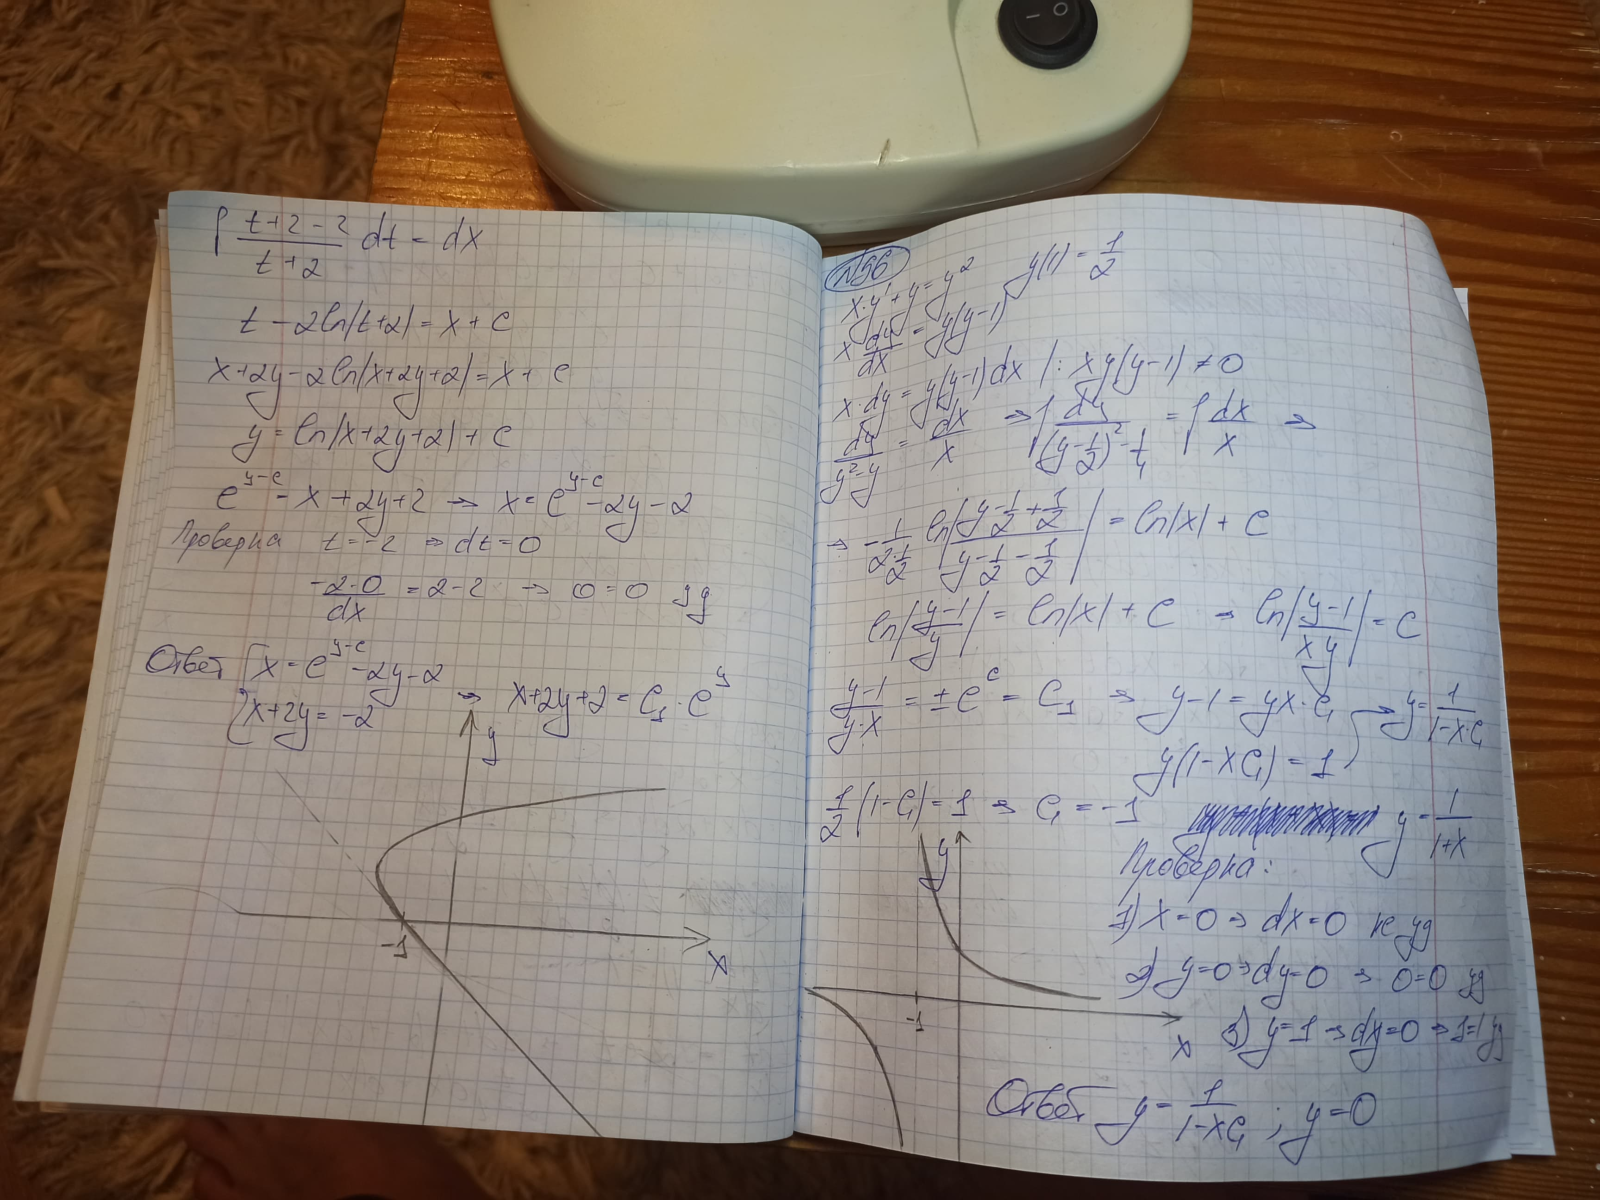 ∫ (t+2-2)/(t+2) dt = dx
t - 2ln|t+2| = x + C
x+2y-2ln|x+2y+2| = x + C
y = ln|x+2y+2| + C
e^(y-c) = x + 2y+2 → x = e^(y-c) - 2y - 2
Проверка t = -2 ⇒ dt = 0
(-2·0)/dx = 2-2 → 0 = 0 уд
Ответ { x = e^(y-c) - 2y - 2
x+2y = -2 → x+2y+2 = C₁·e^y
y
-1
x
N56
x·y' + y = y² y(1) = 1/2
x dy/dx = y(y-1)
x·dy = y(y-1)dx |: xy(y-1) ≠ 0
dy/(y²-y) = dx/x ⇒ ∫ dy/((y-1/2)²-1/4) = ∫ dx/x ⇒
⇒ -1/(2·1/2) ln|(y-1/2+1/2)/(y-1/2-1/2)| = ln|x| + C
ln|(y-1)/y| = ln|x| + C ⇒ ln|(y-1)/(xy)| = C
(y-1)/(y·x) = ±e^c = C₁ ⇒ y-1 = yx·C₁ → y = 1/(1-x·C₁)
y(1-xC₁) = 1
1/2(1-C₁) = 1 ⇒ C₁ = -1 y = 1/(1+x)
Проверка:
1) x=0 ⇒ dx=0 не уд
2) y=0 ⇒ dy=0 ⇒ 0=0 уд
3) y=1 ⇒ dy=0 ⇒ 1=1 уд
y
-1
x
Ответ y = 1/(1-xC₁) ; y=0
I O